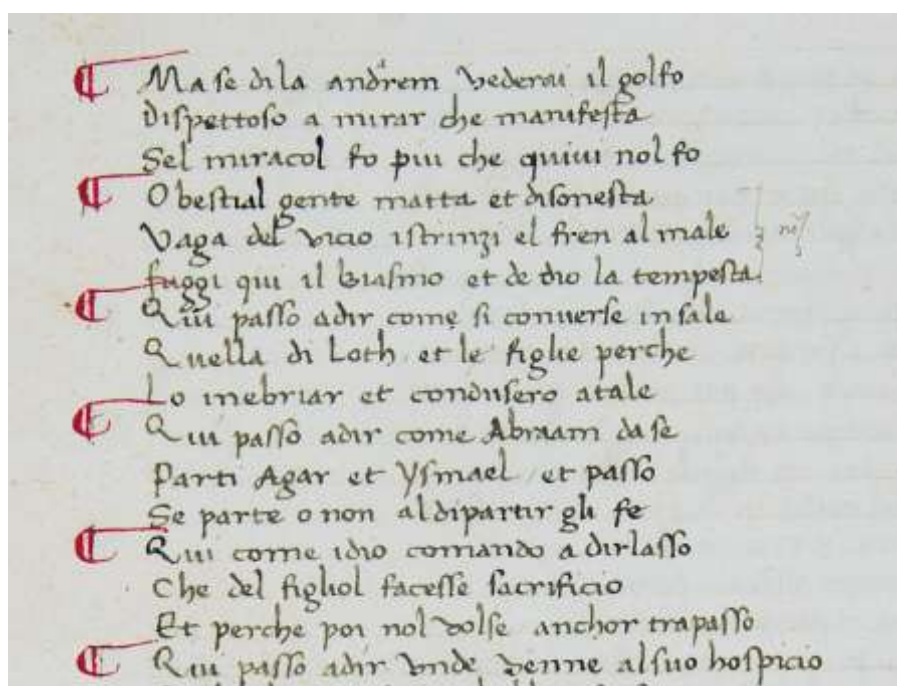 Ma se di la andrem vederai il golfo
Dispettoso a mirar che manifesta
Sel miracol fo piu che quivi nol fo
O bestial gente matta et disonesta
Vaga del vicio istrinzi el fren al male
fuggi qui il biasmo et de dio la tempesta
Qui passo adir come si converse in sale
Quella di Loth et le figlie perche
Lo inebriar et condusero atale
Qui passo adir come Abraam da se
Parti Agar et Ysmael et passo
Se parte o non al dipartir gli fe
Qui come idio comando a dir lasso
Che del figliol facesse sacrificio
Et perche poi nol volse anchor trapasso
Qui passo adir vnde venne al suo hospicio